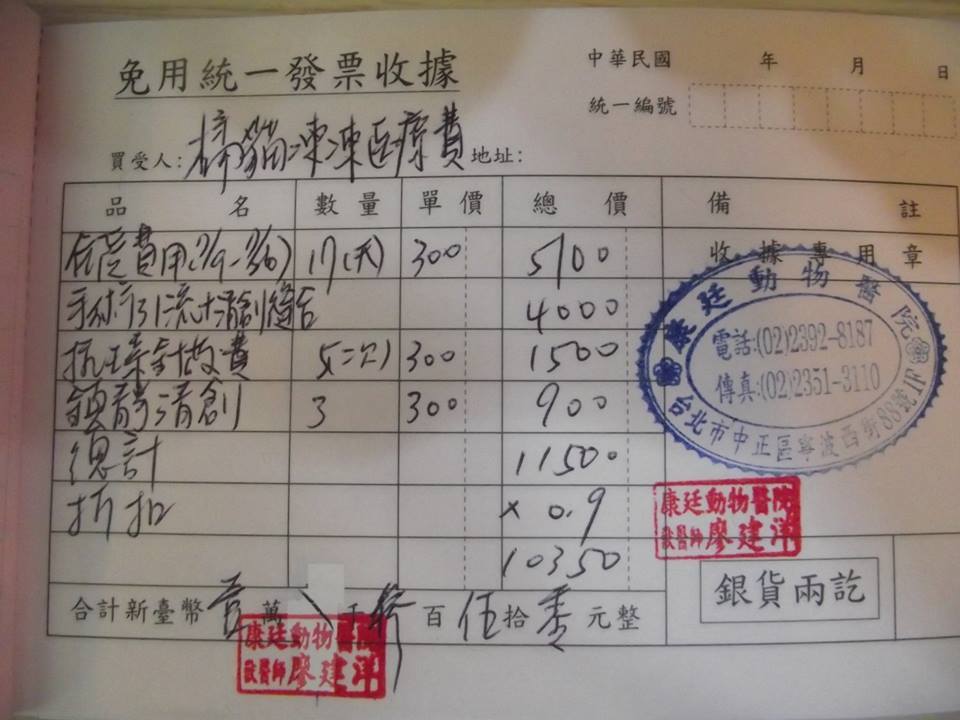 免用統一發票收據
中華民國 年 月 日
統一編號
買受人: 橘貓凍凍医療費 地址:
品名 數量 單價 總價 備註
住院費用 17(天) 300 5100 收據專用章
手術引流+清創縫合 4000
抗生素針放費 5(次) 300 1500
鎮靜清創 3 300 900
總計 11500
折扣 × 0.9
10350
合計新臺幣 壹 萬 千 百 伍 拾 零 元整
康廷動物醫院
電話:(02)2392-8187
傳真:(02)2351-3110
台北市中正區寧波西街88號1F
康廷動物醫院
獸醫師廖建洋
銀貨兩訖
康廷動物醫院
獸醫師廖建洋